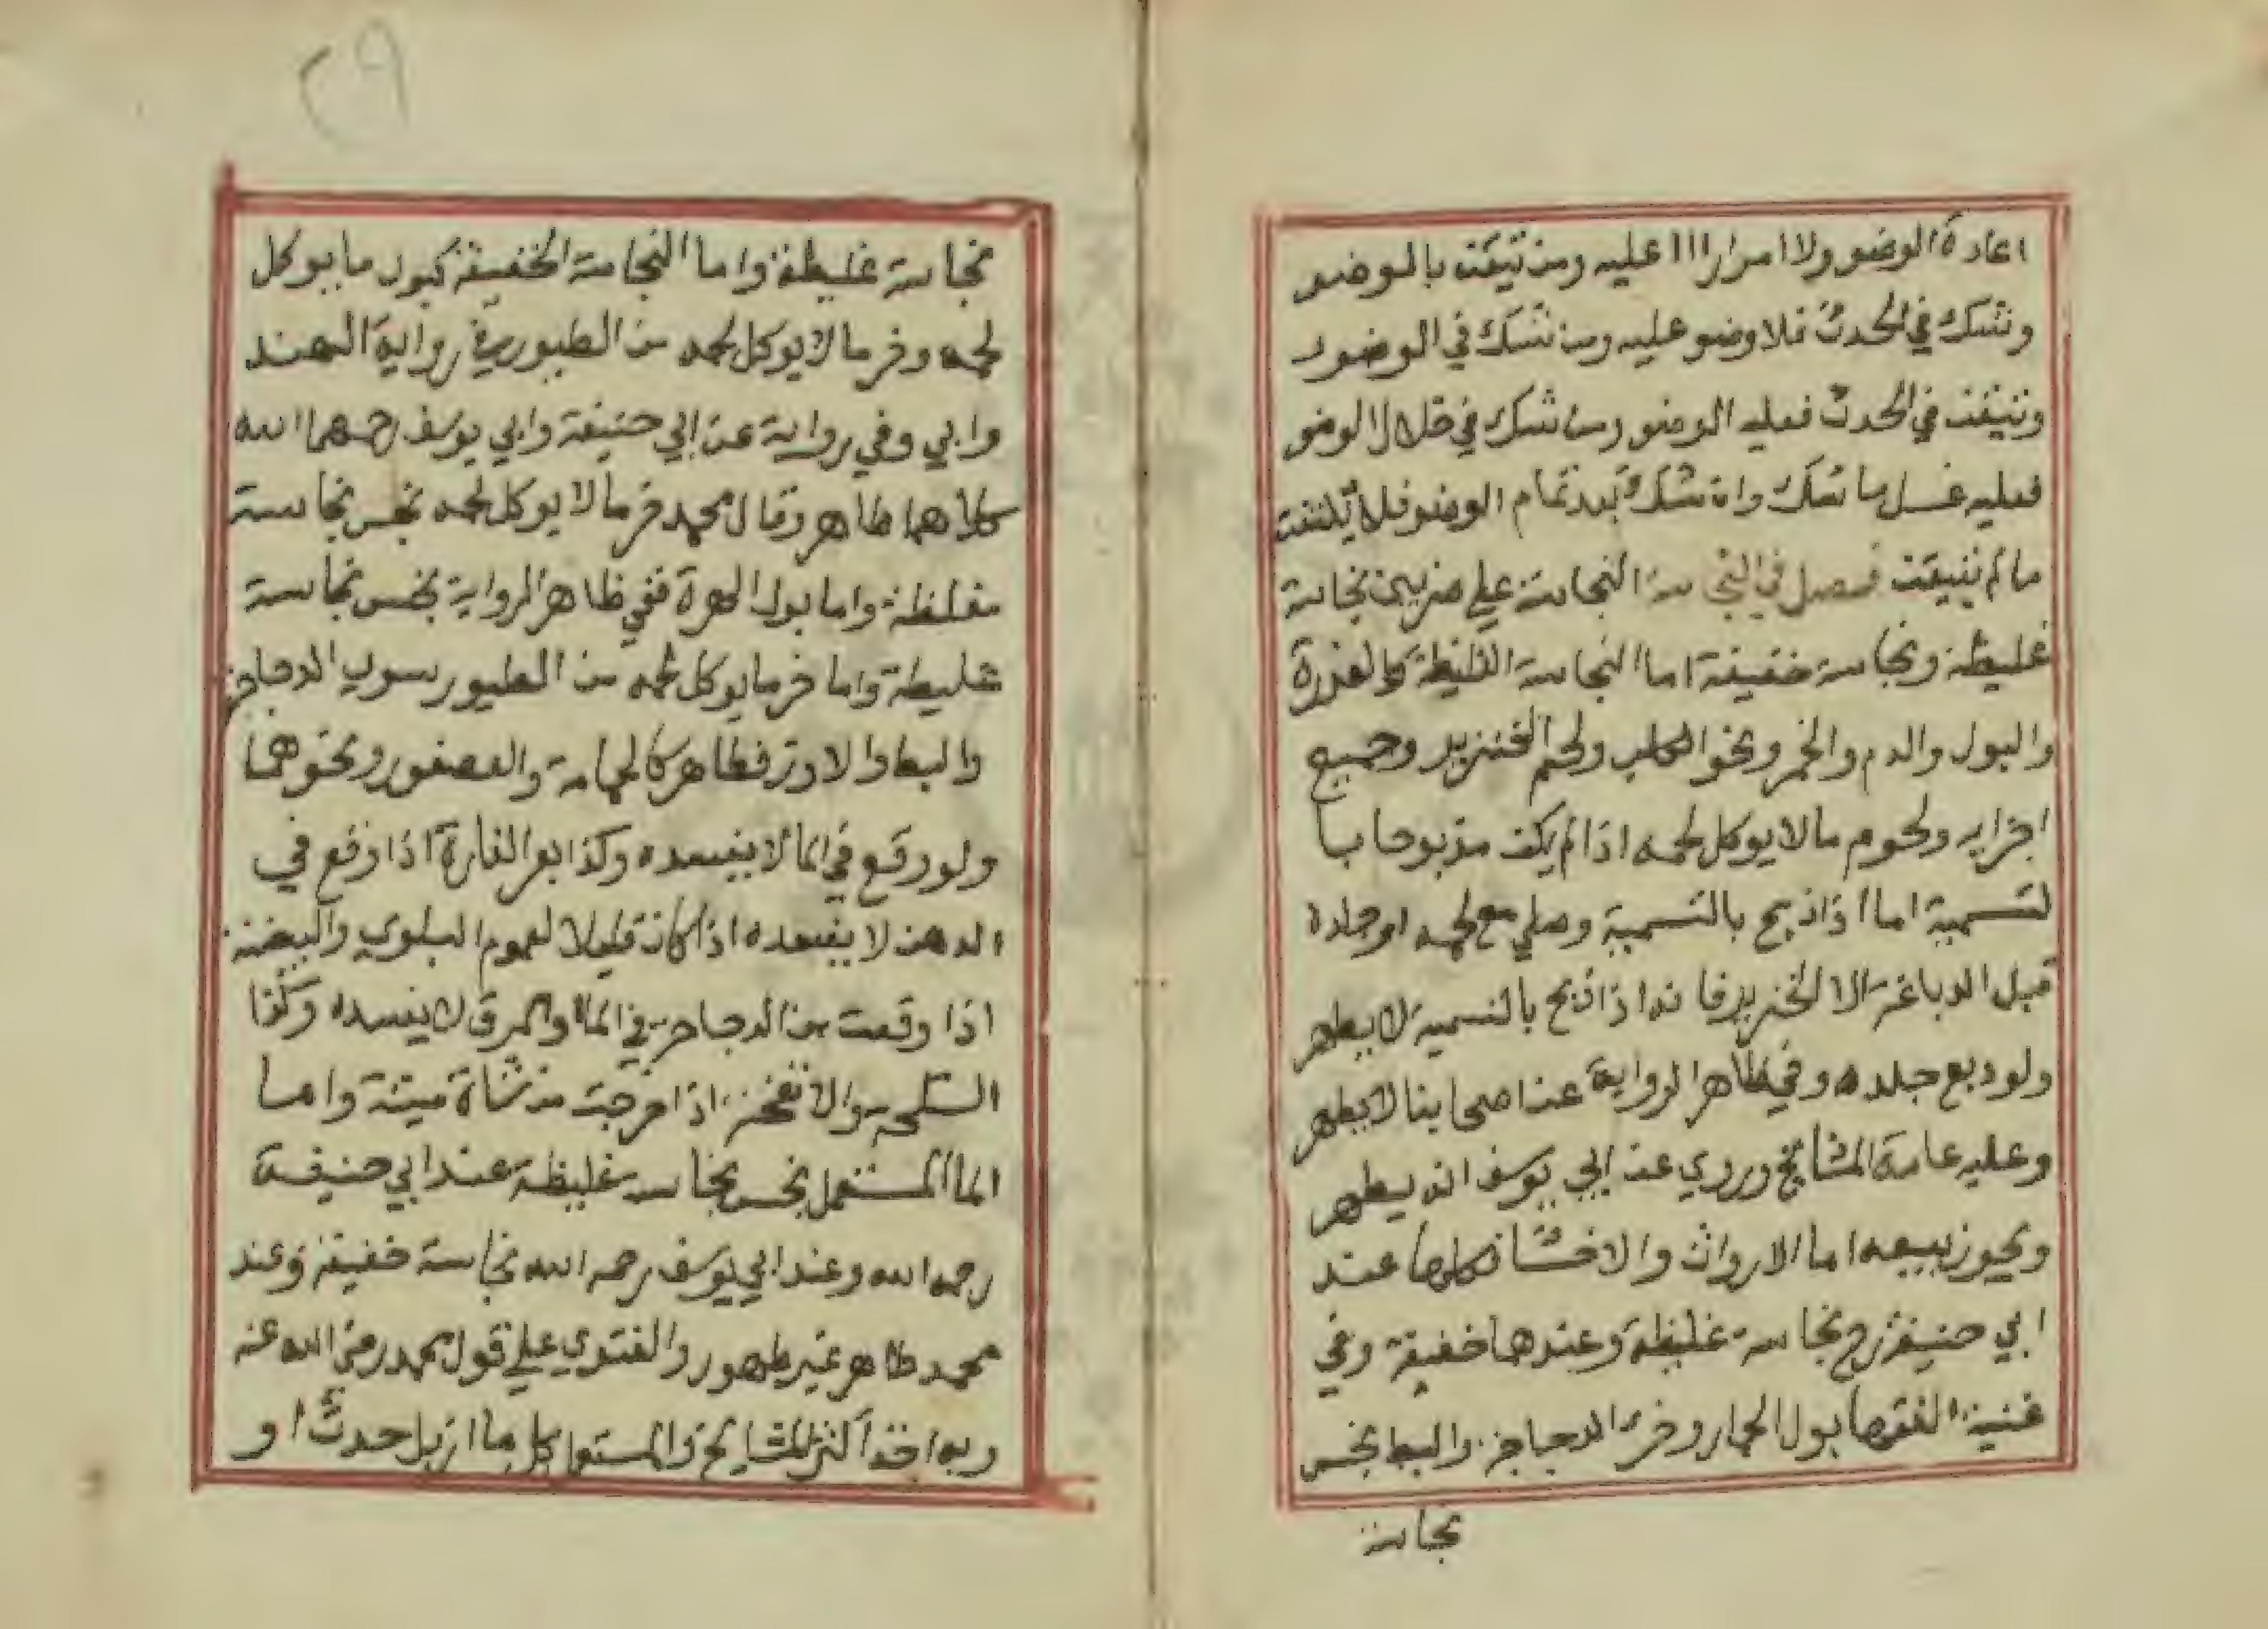 اعادة الوضو ولا امرار الما عليه ومن تيقن بالوضو
وشك في الحدث فلا وضو عليه ومن شك في الوضو
وتيقن في الحدث فعليه الوضو ومن شك في خلال الوضو
فعليه غسل ما شك وان شك بعد تمام الوضو فلا يلتفت
ما لم يتيقن فصل في النجاسة النجاسة علي ضربين نجاسة
غليظة ونجاسة خفيفة اما النجاسة الغليظة كالعذرة
والبول والدم والخمر ونحو الكلب ولحم الخنزير وجميع
اجزايه ولحوم ما لا يوكل لحمه اذا لم يكن مذبوحا با
لتسمية اما اذا ذبح بالتسمية وصلي مع لحمه او جلده
قبل الدباغة الا الخنزير فانه اذا ذبح بالتسمية لا يطهر
ولو دبغ جلده وفي ظاهر الرواية عن اصحابنا لا يطهر
وعليه عامة المشايخ وروي عن ابي يوسف انه يطهر
ويجوز بيعه اما الارواث والاخشا فكلها عند
ابي حنيفة رح نجاسة غليظة وعندهما خفيفة وفي
غنية الفقها بول الحمار وخرء الدجاجة والبط نجس
نجاسة
٢٩
نجاسة غليظة واما النجاسة الخفيفة كبول ما يوكل
لحمه وخر ما لا يوكل لحمه من الطيور في رواية الهند
وابي وفي رواية عن ابي حنيفة وابي يوسف رحمهما الله
كلاهما طاهر وقال محمد خر ما لا يوكل لحمه نجس نجاسة
مغلظة واما بول الهرة ففي ظاهر الرواية نجس نجاسة
غليظة واما خر ما يوكل لحمه من الطيور سوي الدجاجة
والبط والاوز فطاهر كالحمامة والعصفور ونحوهما
ولو وقع في الما لا يفسده وكذا بعر الفارة اذا وقع في
الدهن لا يفسده اذا كان قليلا لعموم البلوي والبيضة
اذا وقعت من الدجاجة في الما والمرق لا يفسده وكذا
السخلة والانفحة اذا خرجت من شاة ميتة واما
الما المستعمل نجس نجاسة غليظة عند ابي حنيفة
رحمه الله وعند ابي يوسف رحمه الله نجاسة خفيفة وعند
محمد طاهر غير طهور والفتوي علي قول محمد رضي الله عنه
وبه اخذ اكثر المشايخ والمستعمل كل ما ازيل حدث او